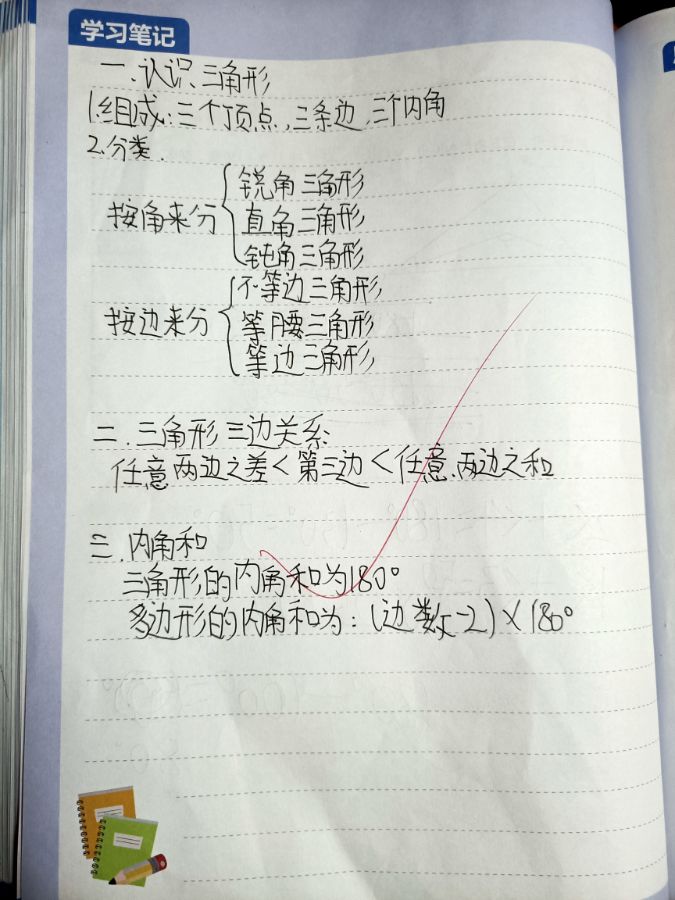 学习笔记
一.认识三角形
1.组成:三个顶点,三条边,三个内角
2.分类.
锐角三角形
按角来分
直角三角形
钝角三角形
不等边三角形
按边来分
等腰三角形
等边三角形
二.三角形三边关系
任意两边之差<第三边<任意两边之和
三.内角和
三角形的内角和为180°
多边形的内角和为:(边数-2)×180°